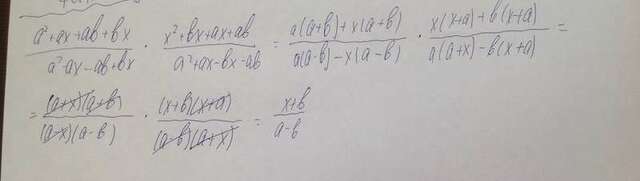 (a²+ax+ab+bx)/(a²-ax-ab+bx) · (x²+bx+ax+ab)/(a²+ax-bx-ab) = (a(a+b)+x(a+b))/(a(a-b)-x(a-b)) · (x(x+a)+b(x+a))/(a(a+x)-b(x+a)) =
= ((a+x)(a+b))/((a-x)(a-b)) · ((x+b)(x+a))/((a-b)(a+x)) = (x+b)/(a-b)